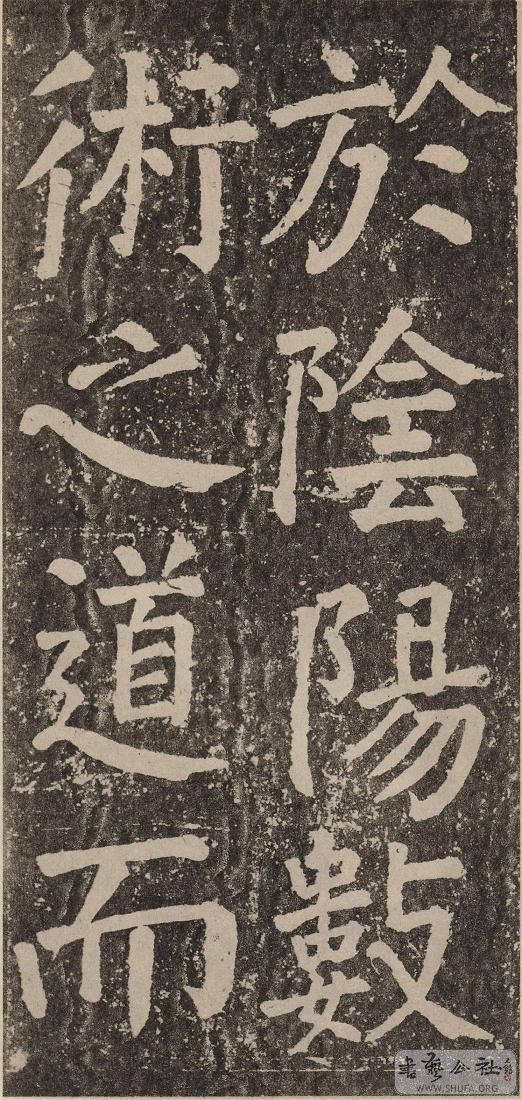 於陰陽數
術之道而
書藝公社
WWW.SHUFA.ORG